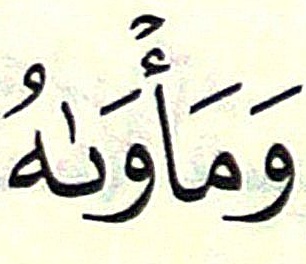 وَمَأْوَىٰهُ